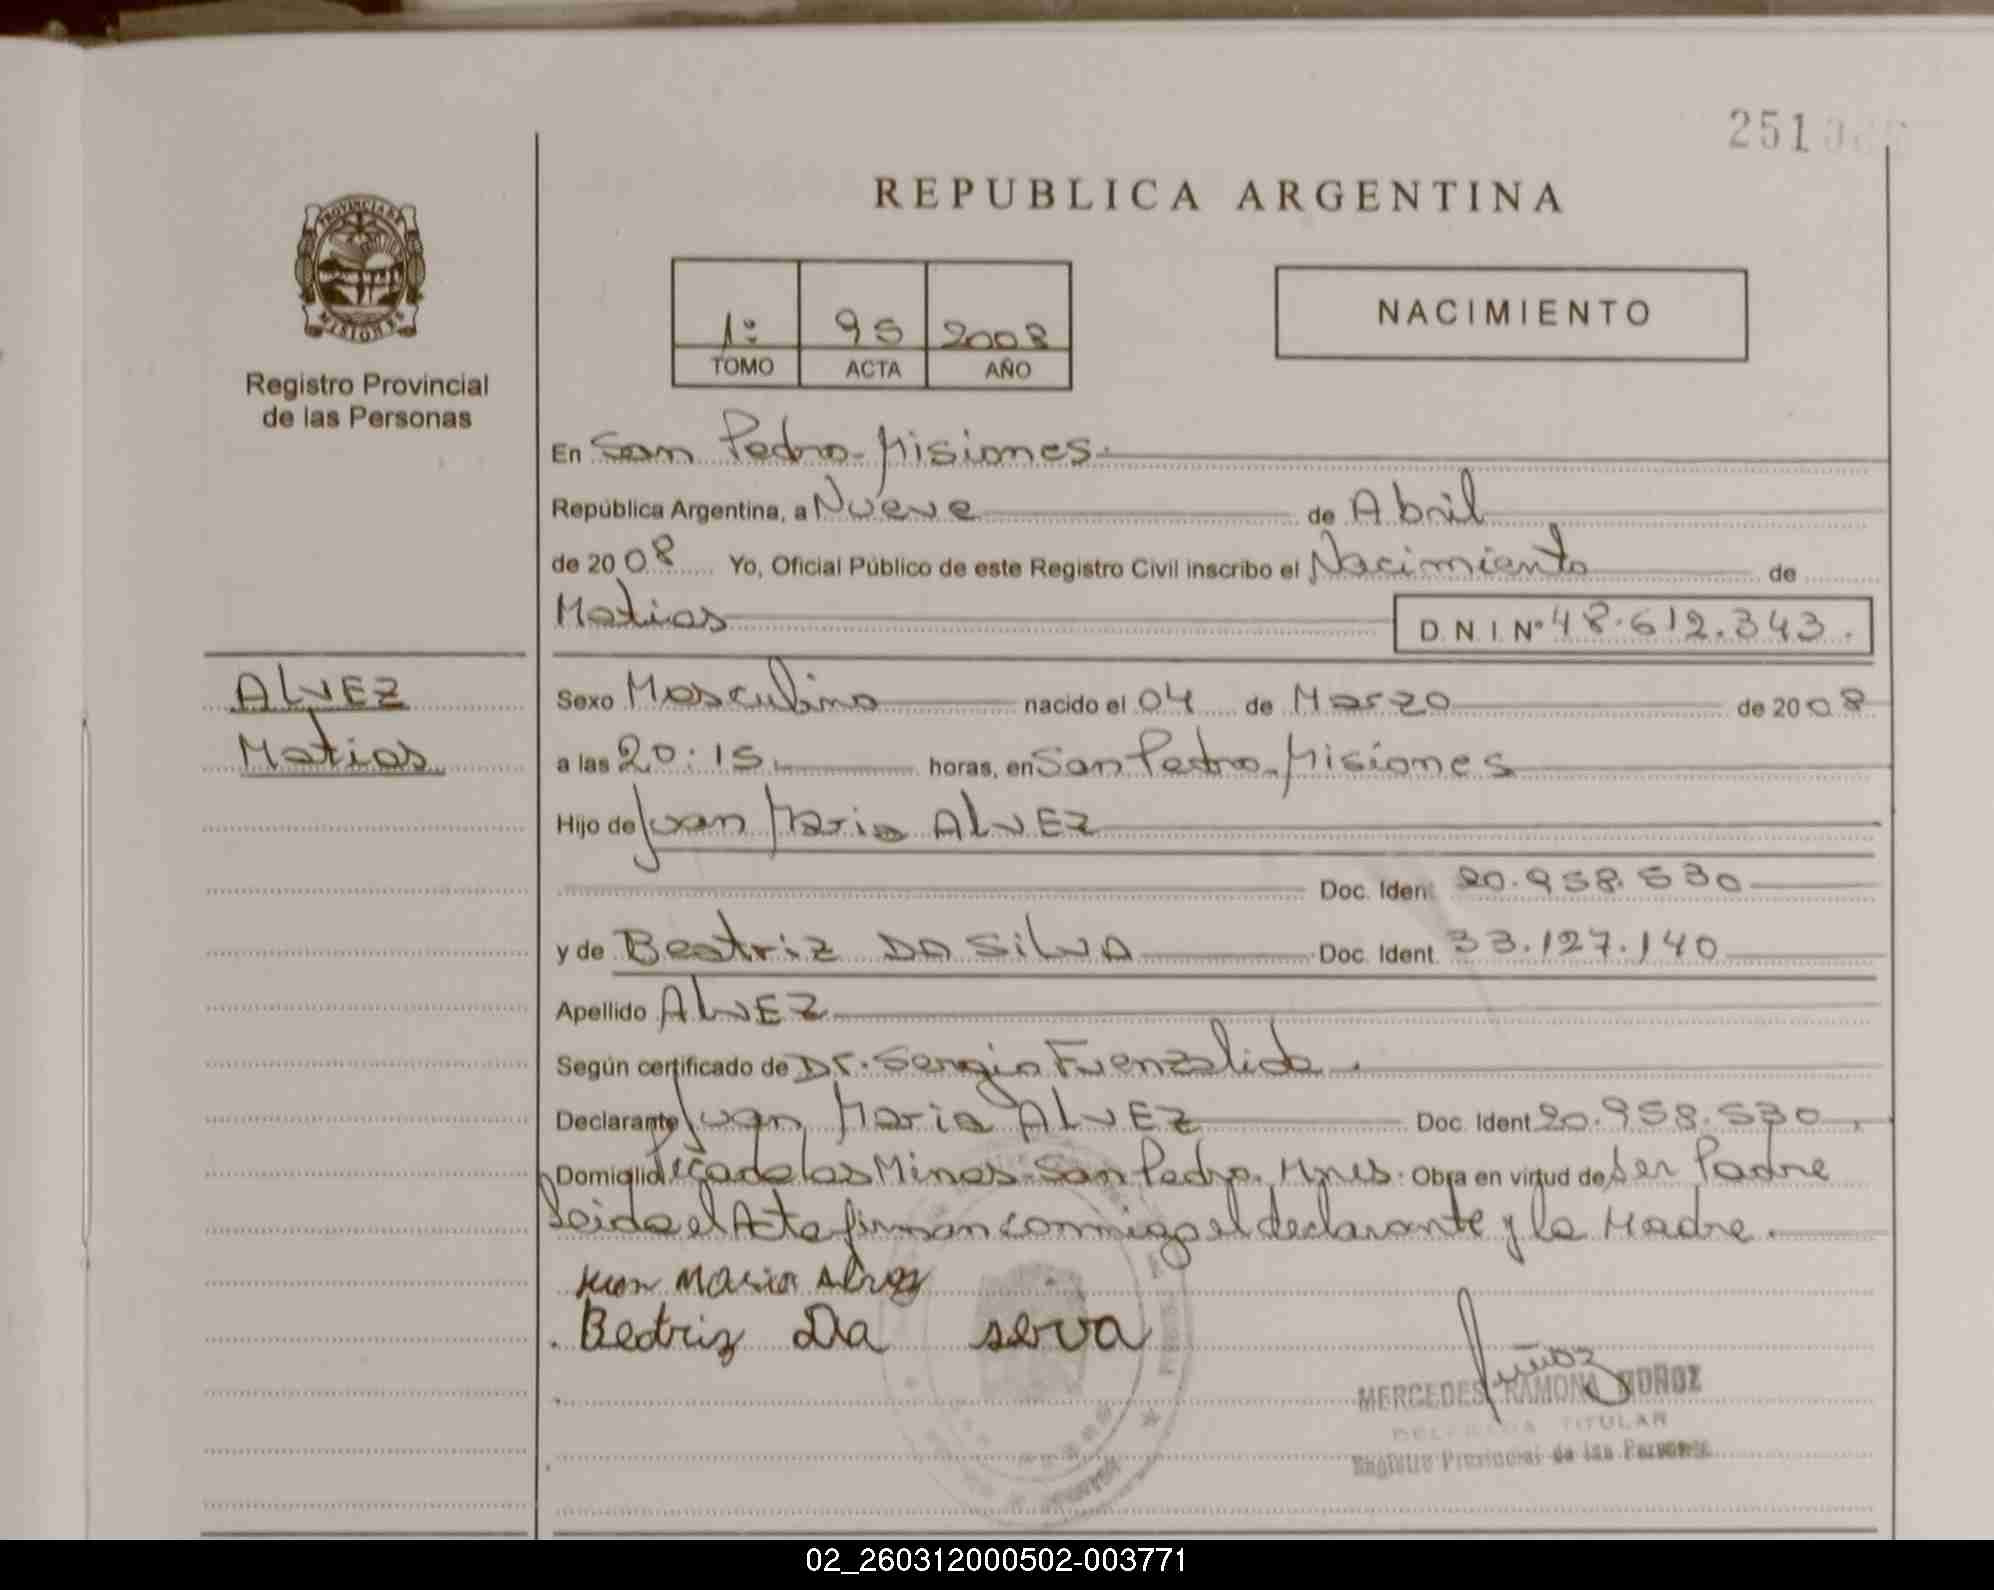 251
REPUBLICA ARGENTINA
PROVINCIA DE
MISIONES
Registro Provincial
de las Personas
1º 95 2008
TOMO ACTA AÑO
NACIMIENTO
En San Pedro - Misiones.
República Argentina, a Nueve de Abril
de 2008 Yo, Oficial Público de este Registro Civil inscribo el Nacimiento de
Matias D.N.I. Nº 48.612.343.
ALVEZ
Matias
Sexo Masculino nacido el 04 de Marzo de 2008
a las 20:15 horas, en San Pedro - Misiones
Hijo de Juan Maria ALVEZ
Doc. Ident. 20.958.530
y de Beatriz DA SILVA Doc. Ident. 33.127.140
Apellido ALVEZ
Según certificado de Dr. Sergio Fuenzalida.
Declarante Juan Maria ALVEZ Doc. Ident. 20.958.530.
Domicilio Picada las Minas - San Pedro. Mnes. Obra en virtud de Ser Padre
Leida el Acta firman conmigo el declarante y la Madre.
Juan Maria Alvez
Beatriz Da serva
Muñoz
MERCEDES RAMONA MUÑOZ
DELEGADA TITULAR
Registro Provincial de las Personas
02_260312000502-003771